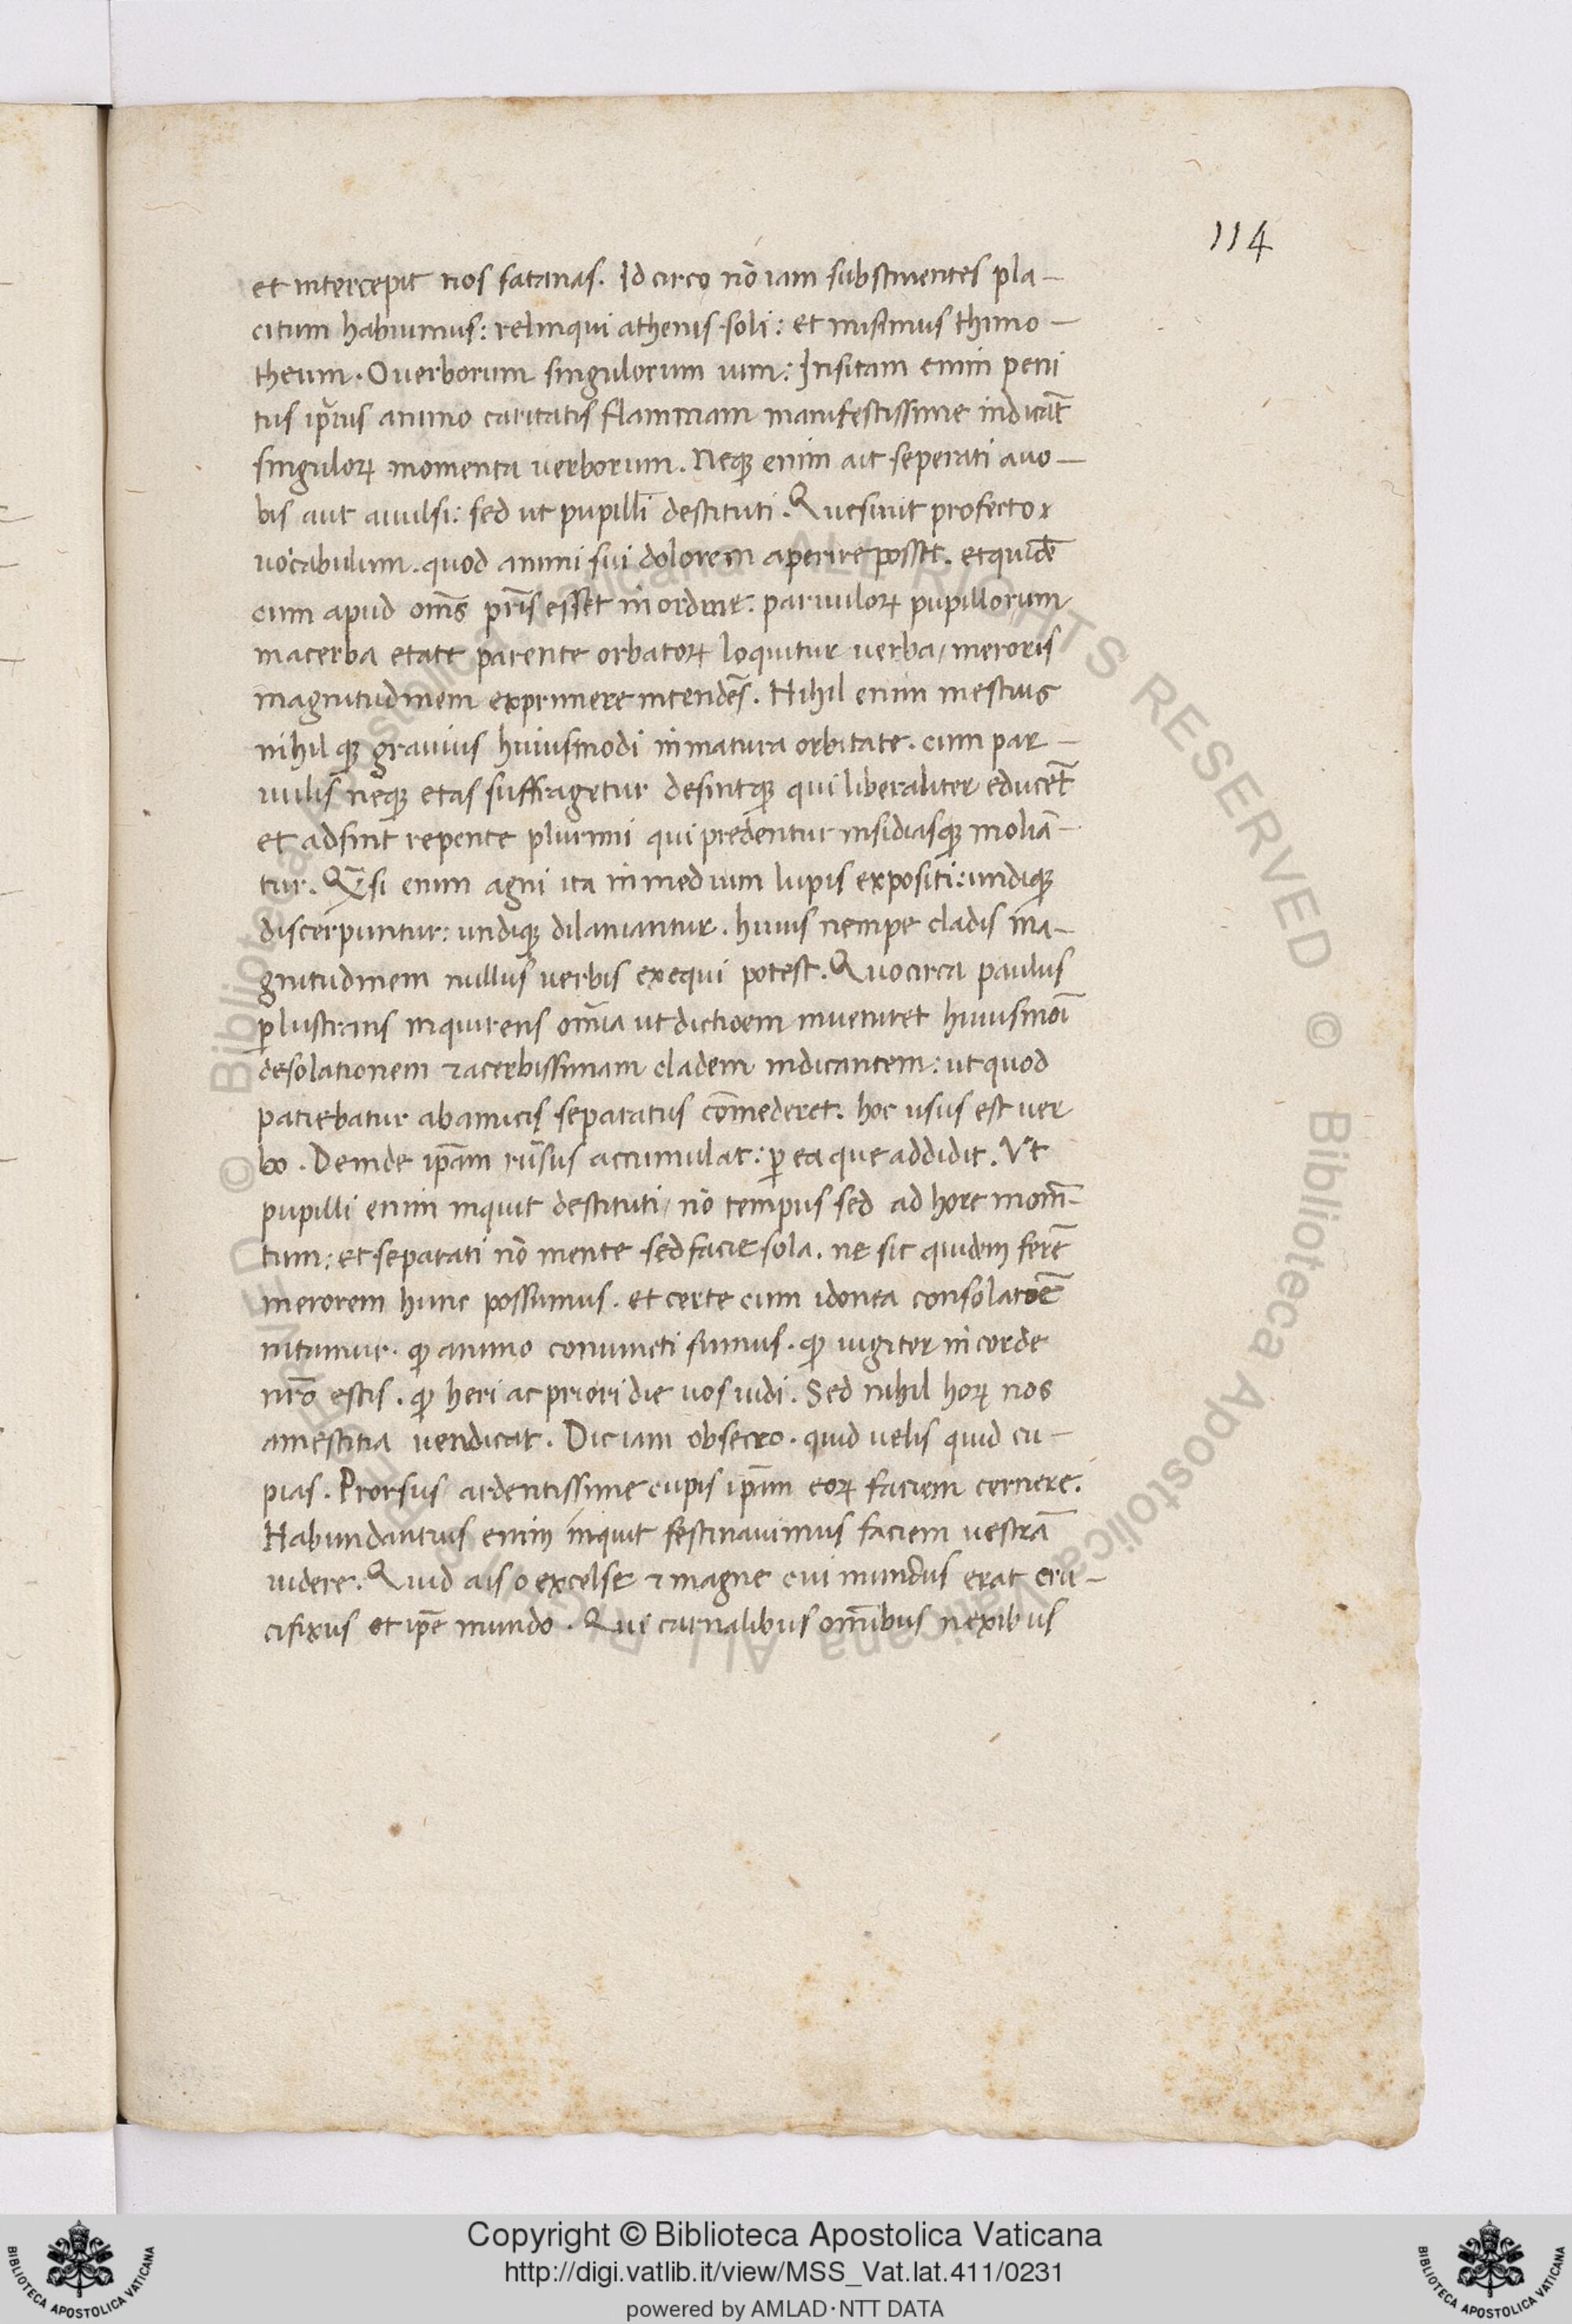 114
et intercepit nos satanas. Id circo nō iam substinentes pla-
citum habuimus: relinqui athenis soli: et misimus thimo-
theum. O uerborum singulorum uim: Insitam enim peni
tus ip̄ius animo caritatis flammam manifestissime indicāt
singuloꝝ momenta uerborum. Neqꝫ enim ait seperati a uo-
bis aut auulsi: sed ut pupilli destituti. Quesiuit profecto
uocabulum. quod animi sui dolorem aperire posset. et quidē
cum apud om̄s pr̄is esset in ordine: paruuloꝝ pupillorum
in acerba etate parente orbatoꝝ loquitur uerba/ meroris
magnitudinem exprimere intendēs. Nihil enim mestius
nihil qꝫ grauius huiusmodi inmatura orbitate. cum par-
uulis neqꝫ etas suffragetur desintqꝫ qui liberaliter educēt
et adsint repente plurimi qui predentur insidiasqꝫ moliā-
tur. Qͣsi enim agni ita in medium lupis expositi: undiqꝫ
discerpuntur: undiqꝫ dilaniantur. huius nempe cladis ma-
gnitudinem nullus uerbis exequi potest. Quocirca paulus
ꝑlustrans inquirens om̄ia ut dictioem inueniret huiusmōi
desolationem ⁊ acerbissimam cladem indicantem: ut quod
patiebatur ab amicis separatus cōmederet. hoc usus est uer
bo. Deinde ip̄am rūsus accumulat: ꝑ ea que addidit. Vt
pupilli enim inquit destituti/ nō tempus sed ad hore mom̄-
tum: et separati nō mente sed facie sola. ne sic quidem ferē
merorem hunc possumus. et certe cum idonea consolatoē
nitamur. ꝙ animo coniuncti sumus. ꝙ iugiter in corde
nr̄o estis. ꝙ heri ac priori die uos uidi. Sed nihil hoꝝ nos
a mestitia uendicat. Dic iam obsecro. quid uelis quid cu-
pias. Prorsus ardentissime cupis ip̄am eoꝝ faciem cernere.
Habundantius enim inquit festinauimus faciem uestrā
uidere. Quid ais o excelse ⁊ magne cui mundus erat cru-
cifixus et ip̄e mundo. Qui carnalibus om̄ibus nexibus
© Biblioteca Apostolica Vaticana ALL RIGHTS RESERVED
Copyright © Biblioteca Apostolica Vaticana
http://digi.vatlib.it/view/MSS_Vat.lat.411/0231
powered by AMLAD·NTT DATA
BIBLIOTECA APOSTOLICA VATICANA
BIBLIOTECA APOSTOLICA VATICANA